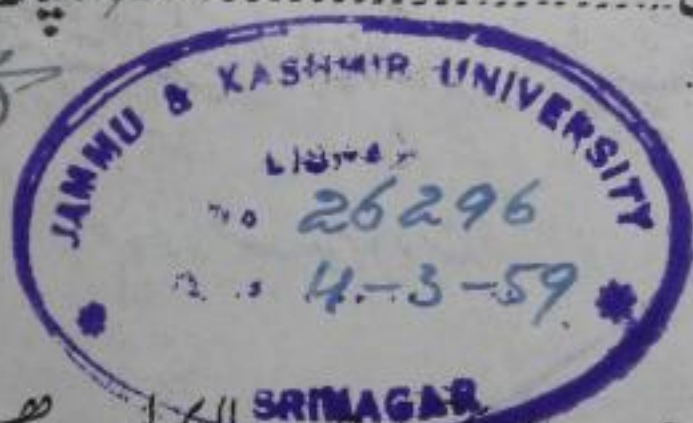 JAMMU & KASHMIR UNIVERSITY
LIBRARY
No 26296
4-3-59
SRINAGAR